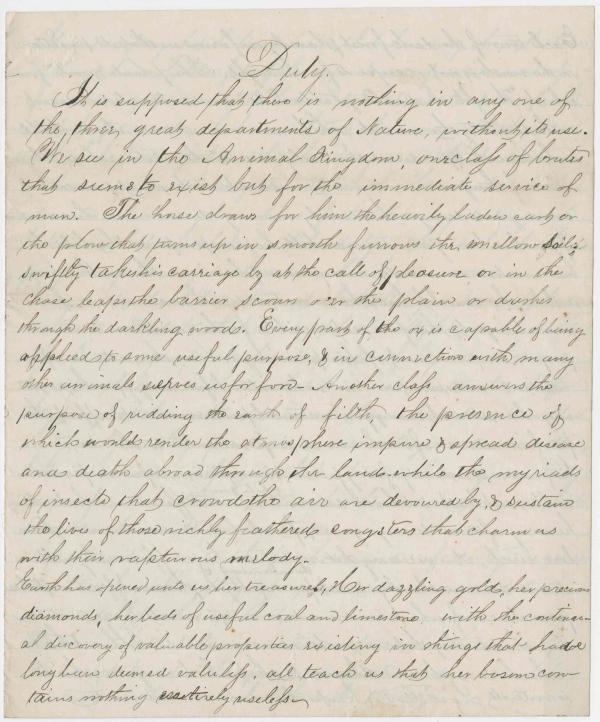 Duty.
It is supposed that there is nothing in any one of
the three great departments of Nature, without its use.
We see in the Animal Kingdom, one class of brutes
that seems to exist but for the immediate service of
man. The horse draws for him the heavily laden cart or
the plow that turns up in smooth furrows the mellow soil;
swiftly takes his carriage by at the call of pleasure or in the
chase leaps the barrier scours over the plain or dashes
through the darkling wood. Every part of the ox is capable of being
applied to some useful purpose, & in connection with many
other animals serves us for food. Another class answers the
purpose of ridding the earth of filth, the presence of
which would render the atmosphere impure & spread disease
and death abroad through the land - while the myriads
of insects that crowd the air are devoured by, & sustain
the lives of those richly feathered songsters that charm us
with their rapturous melody.
Earth has opened unto us her treasures, Her dazzling gold, her precious
diamonds, her beds of useful coal and limestone with the continu-
al discovery of valuable properties existing in things that had
long been deemed valueless, all teach us that her bosom con-
tains nothing entirely useless.